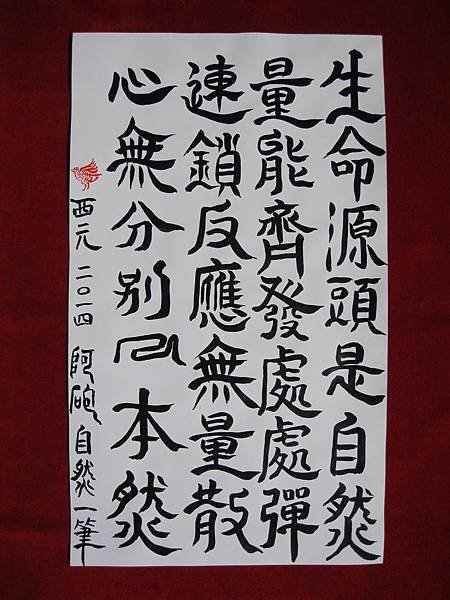 生命源頭是自然
量能齊發處處彈
連鎖反應無量散
心無分別本然
西元 二〇一四 阿砲 自然一筆